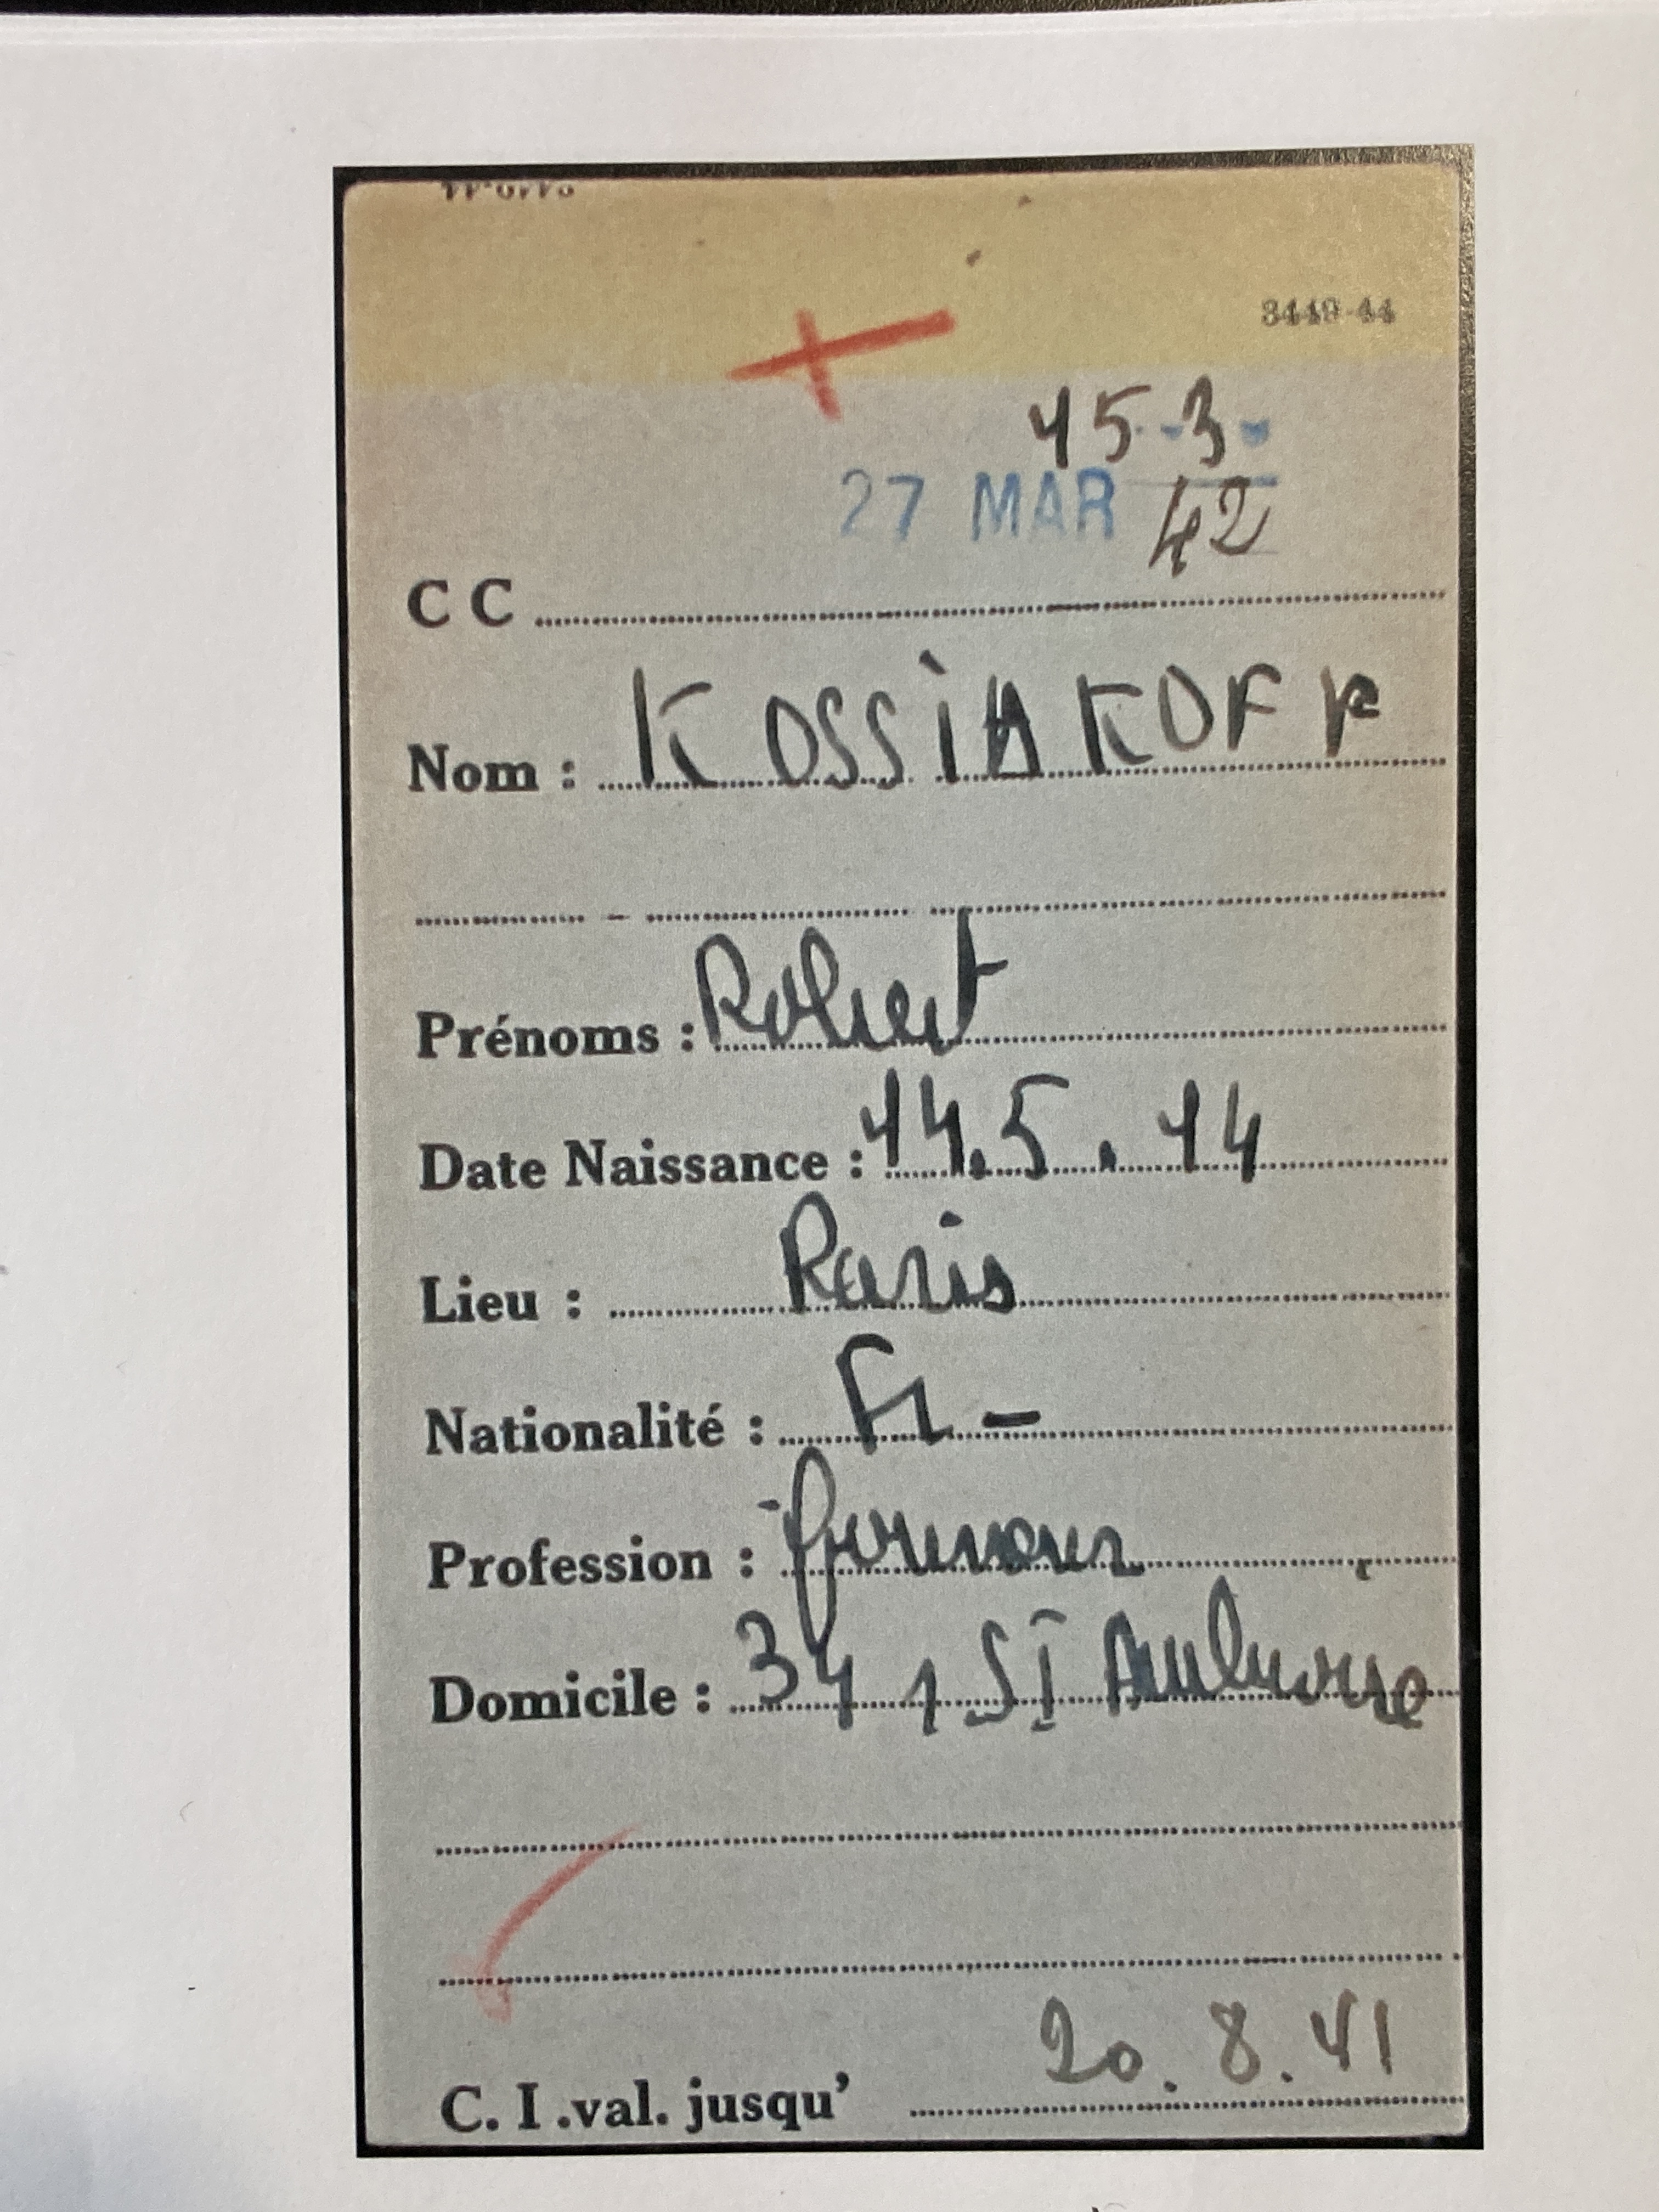 3449-44
15-3-
27 MAR 42
C C
Nom : KOSSiAKOFF
Prénoms : Robert
Date Naissance : 14.5.14
Lieu : Paris
Nationalité : Fr -
Profession : fourreur
Domicile : 34 r ST Ambroise
20.8.41
C. I .val. jusqu'